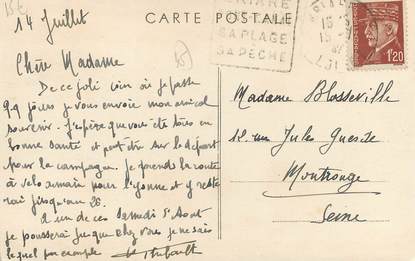 15€
14 Juillet
CARTE POSTALE
SA PLAGE
SA PÊCHE
1F20
Chère Madame
De ce joli coin où je passe
qq jours je vous envoie mon amical
souvenir. J'espère que vous êtes tous en
bonne santé et peut être sur le départ
pour la campagne. Je prends la route
à vélo demain pour l'yonne et y reste
rai jusqu'au 26.
A un de ces Samedi d'Aout
je pousserai jusque chez vous je ne sais
lequel par exemple
Thibault
Madame Blosseville
rue Jules Guesde
Montrouge
Seine